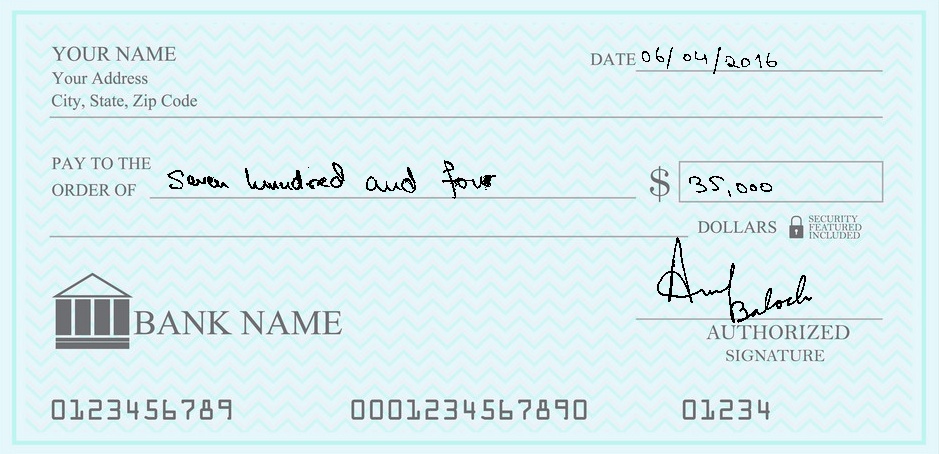 YOUR NAME
Your Address
City, State, Zip Code
DATE 06/04/2016
PAY TO THE
ORDER OF Seven hundred and four $ 35,000
DOLLARS SECURITY
FEATURED
INCLUDED
BANK NAME
Baloch
AUTHORIZED
SIGNATURE
0123456789 0001234567890 01234